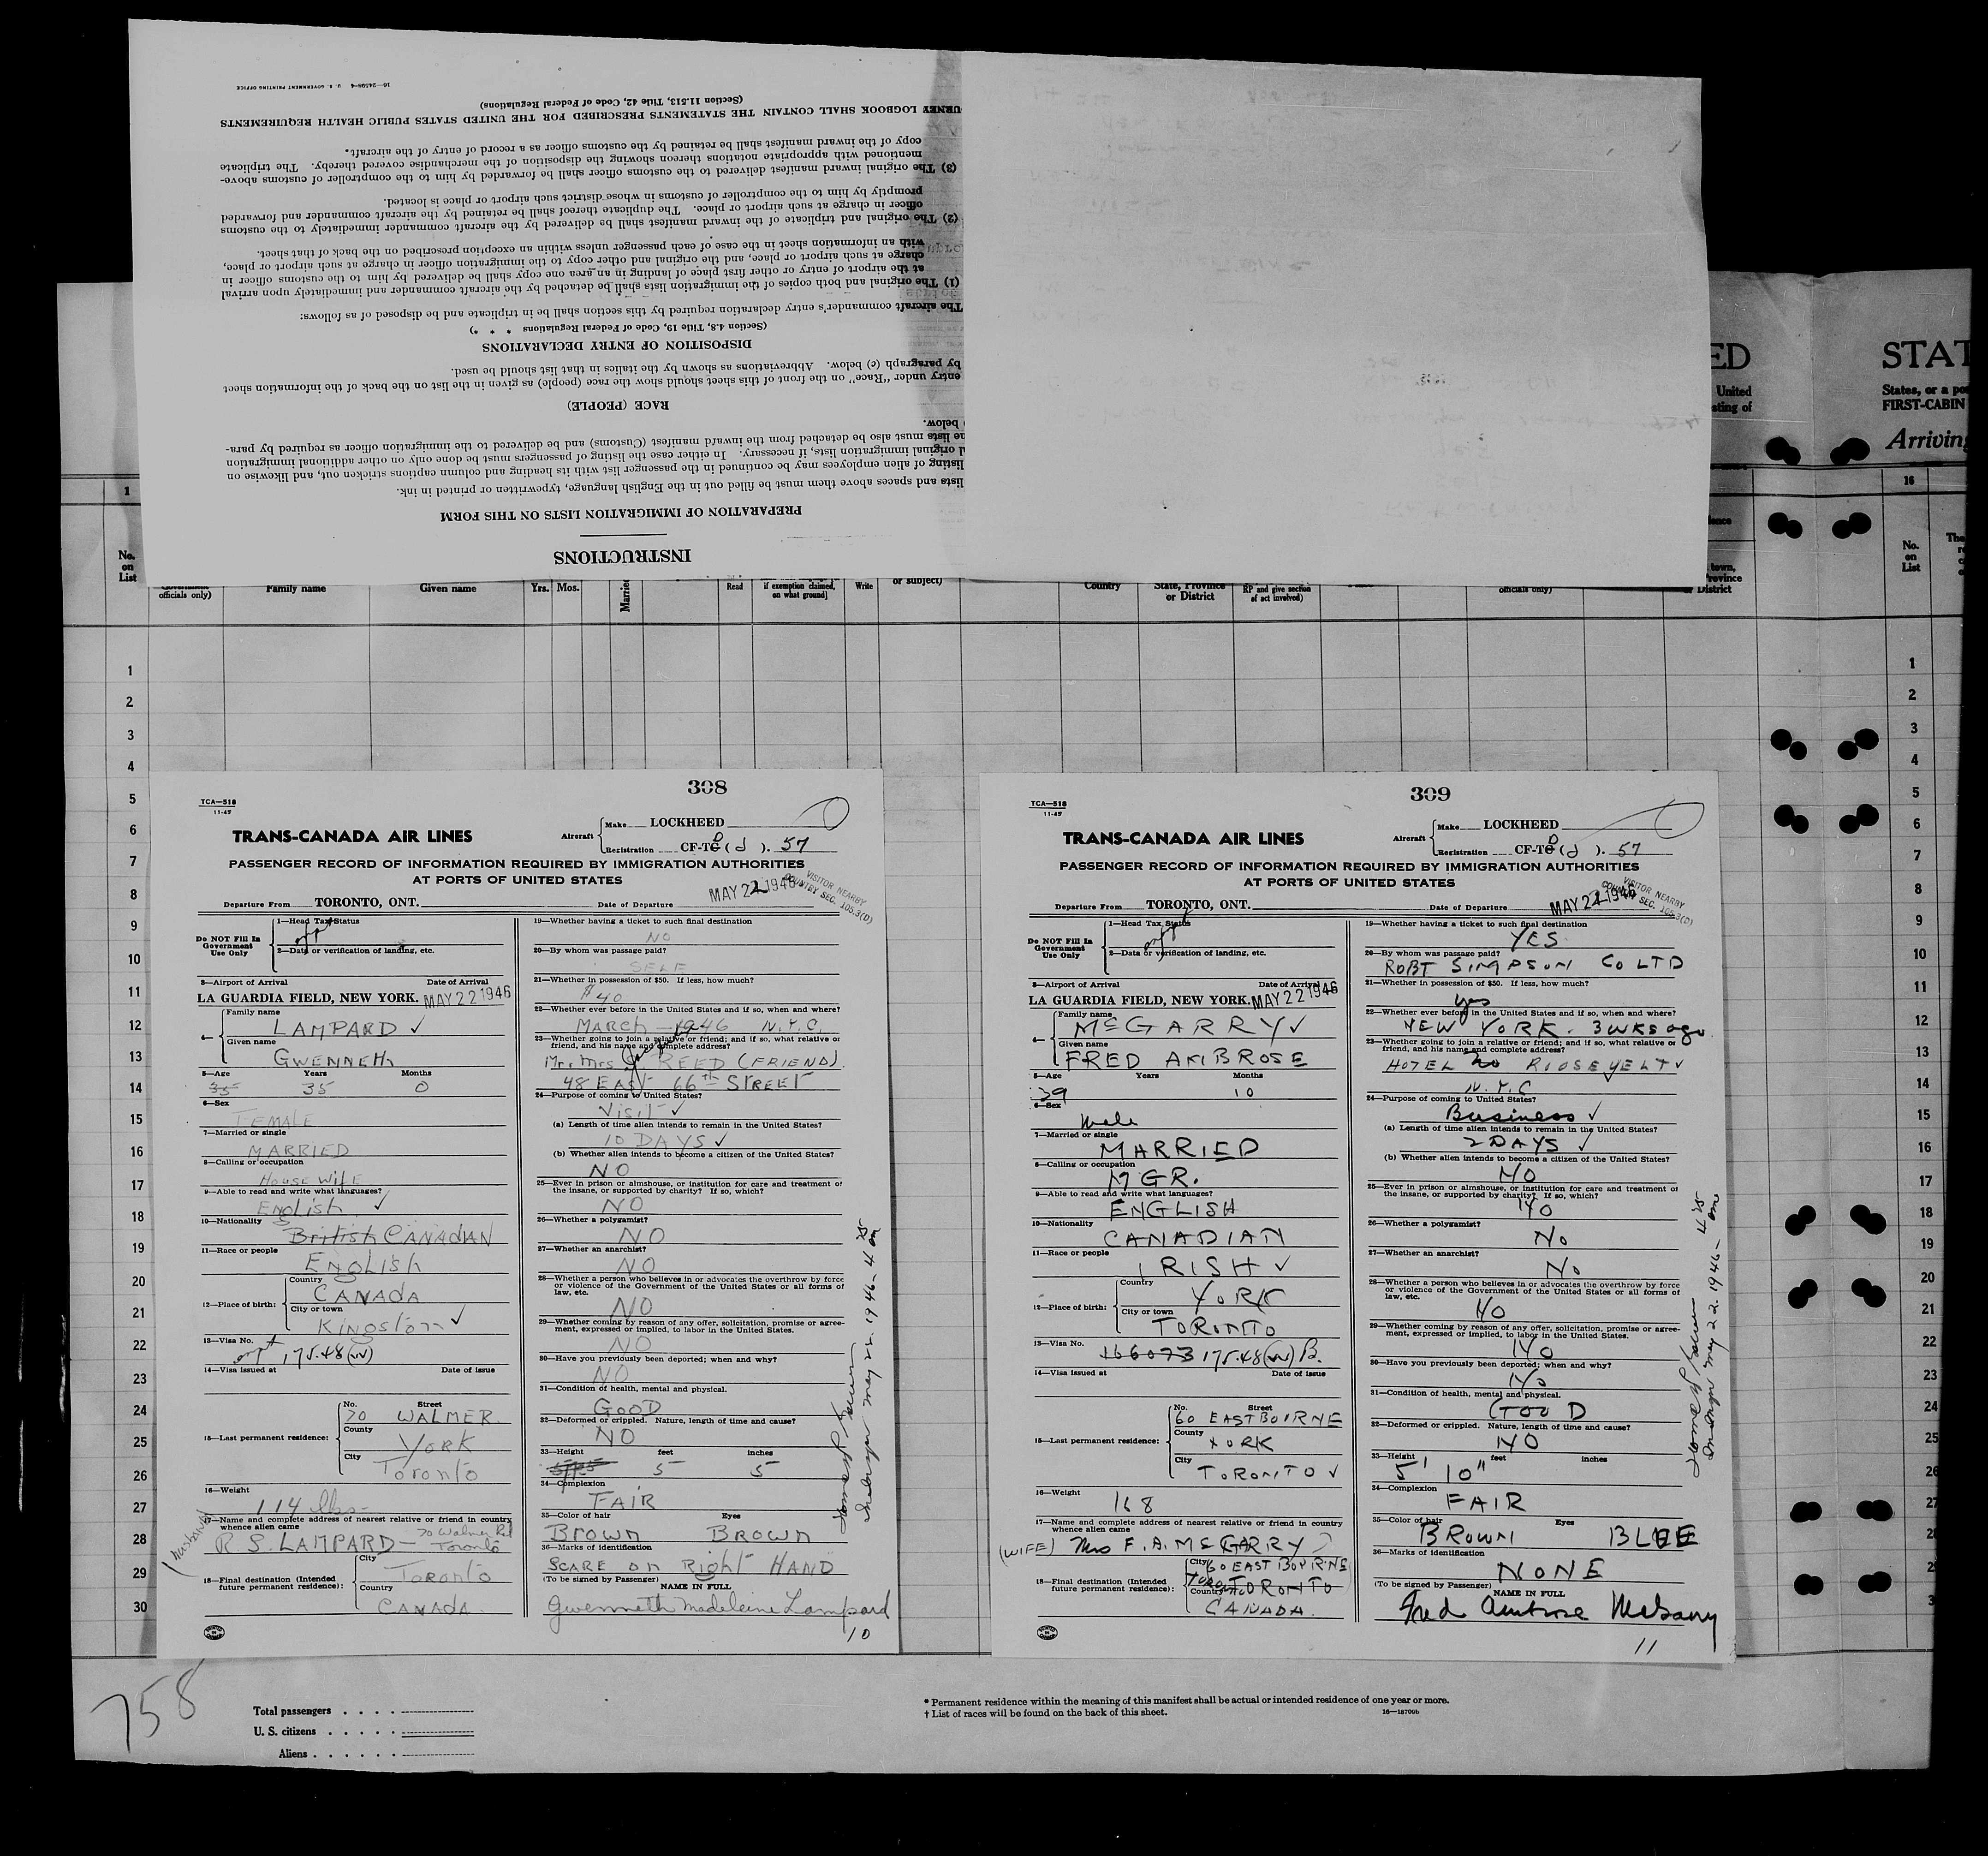 INSTRUCTIONS
PREPARATION OF IMMIGRATION LISTS ON THIS FORM
lists and spaces above them must be filled out in the English language, typewritten or printed in ink.
listing of alien employees may be continued in the passenger list with its heading and column captions stricken out, and likewise on
original immigration lists, if necessary. In either case the listing of passengers must be done only on other additional immigration
lists must also be detached from the inward manifest (Customs) and be delivered to the immigration officer as required by para-
below.
RACE (PEOPLE)
entry under "Race" on the front of this sheet should show the race (people) as given in the list on the back of the information sheet
by paragraph (c) below. Abbreviations as shown by the italics in that list should be used.
DISPOSITION OF ENTRY DECLARATIONS
(Section 4.8, Title 19, Code of Federal Regulations * * *)
The aircraft commander's entry declaration required by this section shall be in triplicate and be disposed of as follows:
(1) The original and both copies of the immigration lists shall be detached by the aircraft commander and immediately upon arrival
at the airport of entry or other first place of landing in an area one copy shall be delivered by him to the customs officer in
charge at such airport or place, and the original and other copy to the immigration officer in charge at such airport or place,
with an information sheet in the case of each passenger unless within an exception prescribed on the back of that sheet.
(2) The original and triplicate of the inward manifest shall be delivered by the aircraft commander immediately to the customs
officer in charge at such airport or place. The duplicate thereof shall be retained by the aircraft commander and forwarded
promptly by him to the comptroller of customs in whose district such airport or place is located.
(3) The original inward manifest delivered to the customs officer shall be forwarded by him to the comptroller of customs above-
mentioned with appropriate notations thereon showing the disposition of the merchandise covered thereby. The triplicate
copy of the inward manifest shall be retained by the customs officer as a record of entry of the aircraft.
URNEY LOGBOOK SHALL CONTAIN THE STATEMENTS PRESCRIBED FOR THE UNITED STATES PUBLIC HEALTH REQUIREMENTS
(Section 11.513, Title 42, Code of Federal Regulations)
16—24598-4 U. S. GOVERNMENT PRINTING OFFICE
ED STAT
United States, or a po
sting of FIRST-CABIN
Arriving
1 16
No. on List
officials only) Family name Given name Yrs. Mos. Married Read if exemption claimed, on what ground] Write or subject) Country State, Province or District RP and give section of act involved) officials only) town, Province or District
No. on List
1
2
3
4
5
6
7
8
9
10
11
12
13
14
15
16
17
18
19
20
21
22
23
24
25
26
27
28
29
30
308
TCA—518
11-45
TRANS-CANADA AIR LINES
Aircraft Make LOCKHEED
Registration CF-TC (d). 57
PASSENGER RECORD OF INFORMATION REQUIRED BY IMMIGRATION AUTHORITIES
AT PORTS OF UNITED STATES
MAY 22 1946 VISITOR NEARBY COUNTRY SEC. 105.3(D)
Departure From TORONTO, ONT. Date of Departure
Do NOT Fill In Government Use Only
1—Head Tax Status
2—Data or verification of landing, etc.
3—Airport of Arrival Date of Arrival
LA GUARDIA FIELD, NEW YORK. MAY 22 1946
4— Family name
LAMPARD ✓
Given name
GWENNETH
5—Age Years Months
35 35 0
6—Sex
FEMALE
7—Married or single
MARRIED
8—Calling or occupation
HOUSE WIFE
9—Able to read and write what languages?
ENGLISH ✓
10—Nationality
British CANADIAN
11—Race or people
ENGLISH
12—Place of birth: Country
CANADA
City or town
Kingston ✓
13—Visa No.
175.48 (VV)
14—Visa issued at Date of issue
15—Last permanent residence: No. Street
70 WALMER
County
YORK
City
Toronto
16—Weight
114 lbs-
17—Name and complete address of nearest relative or friend in country whence alien came
(husband) R. S. LAMPARD — 70 Walmer Rd Toronto
18—Final destination (Intended future permanent residence): City
Toronto
Country
CANADA
19—Whether having a ticket to such final destination
NO
20—By whom was passage paid?
SELF
21—Whether in possession of $50. If less, how much?
$40
22—Whether ever before in the United States and if so, when and where?
MARCH — 1946 N.Y.C.
23—Whether going to join a relative or friend; and if so, what relative or friend, and his name and complete address?
Mr. Mrs REED (FRIEND)
48 EAST 66th STREET
24—Purpose of coming to United States?
Visit ✓
(a) Length of time alien intends to remain in the United States?
10 DAYS ✓
(b) Whether alien intends to become a citizen of the United States?
NO
25—Ever in prison or almshouse, or institution for care and treatment of the insane, or supported by charity? If so, which?
NO
26—Whether a polygamist?
NO
27—Whether an anarchist?
NO
28—Whether a person who believes in or advocates the overthrow by force or violence of the Government of the United States or all forms of law, etc.
NO
29—Whether coming by reason of any offer, solicitation, promise or agreement, expressed or implied, to labor in the United States.
NO
30—Have you previously been deported; when and why?
NO
31—Condition of health, mental and physical.
GOOD
32—Deformed or crippled. Nature, length of time and cause?
NO
33—Height feet inches
5 5
34—Complexion
FAIR
35—Color of hair Eyes
BROWN BROWN
36—Marks of identification
SCARE ON RIGHT HAND
(To be signed by Passenger) NAME IN FULL
Gwenneth Madeleine Lampard
10
May 22. 1946 -
309
TCA—518
11-45
TRANS-CANADA AIR LINES
Aircraft Make LOCKHEED
Registration CF-TC (d). 57
PASSENGER RECORD OF INFORMATION REQUIRED BY IMMIGRATION AUTHORITIES
AT PORTS OF UNITED STATES
MAY 22 1946 VISITOR NEARBY COUNTRY SEC. 105.3(D)
Departure From TORONTO, ONT. Date of Departure
Do NOT Fill In Government Use Only
1—Head Tax Status
2—Data or verification of landing, etc.
3—Airport of Arrival Date of Arrival
LA GUARDIA FIELD, NEW YORK. MAY 22 1946
4— Family name
McGARRY ✓
Given name
FRED AMBROSE
5—Age Years Months
39 10
6—Sex
Male
7—Married or single
MARRIED
8—Calling or occupation
MGR.
9—Able to read and write what languages?
ENGLISH
10—Nationality
CANADIAN
11—Race or people
IRISH ✓
12—Place of birth: Country
YORK
City or town
TORONTO
13—Visa No.
166073 175.48 (VV) B.
14—Visa issued at Date of issue
15—Last permanent residence: No. Street
60 EASTBOURNE
County
YORK
City
TORONTO ✓
16—Weight
168
17—Name and complete address of nearest relative or friend in country whence alien came
(WIFE) Mrs F. A. McGARRY
18—Final destination (Intended future permanent residence): City
60 EASTBOURNE
TORONTO
Country
CANADA.
19—Whether having a ticket to such final destination
YES
20—By whom was passage paid?
ROBT SIMPSON CO LTD
21—Whether in possession of $50. If less, how much?
yes
22—Whether ever before in the United States and if so, when and where?
NEW YORK. 3 WKS ago
23—Whether going to join a relative or friend; and if so, what relative or friend, and his name and complete address?
HOTEL ROOSEVELT ✓
N.Y.C
24—Purpose of coming to United States?
Business ✓
(a) Length of time alien intends to remain in the United States?
2 DAYS ✓
(b) Whether alien intends to become a citizen of the United States?
NO
25—Ever in prison or almshouse, or institution for care and treatment of the insane, or supported by charity? If so, which?
NO
26—Whether a polygamist?
No
27—Whether an anarchist?
No
28—Whether a person who believes in or advocates the overthrow by force or violence of the Government of the United States or all forms of law, etc.
NO
29—Whether coming by reason of any offer, solicitation, promise or agreement, expressed or implied, to labor in the United States.
NO
30—Have you previously been deported; when and why?
No
31—Condition of health, mental and physical.
GOOD
32—Deformed or crippled. Nature, length of time and cause?
NO
33—Height feet inches
5' 10"
34—Complexion
FAIR
35—Color of hair Eyes
BROWN BLUE
36—Marks of identification
NONE
(To be signed by Passenger) NAME IN FULL
Fred Ambrose McGarry
11
May 22. 1946 -
758
Total passengers
U. S. citizens
Aliens
* Permanent residence within the meaning of this manifest shall be actual or intended residence of one year or more.
† List of races will be found on the back of this sheet.
16—18709b